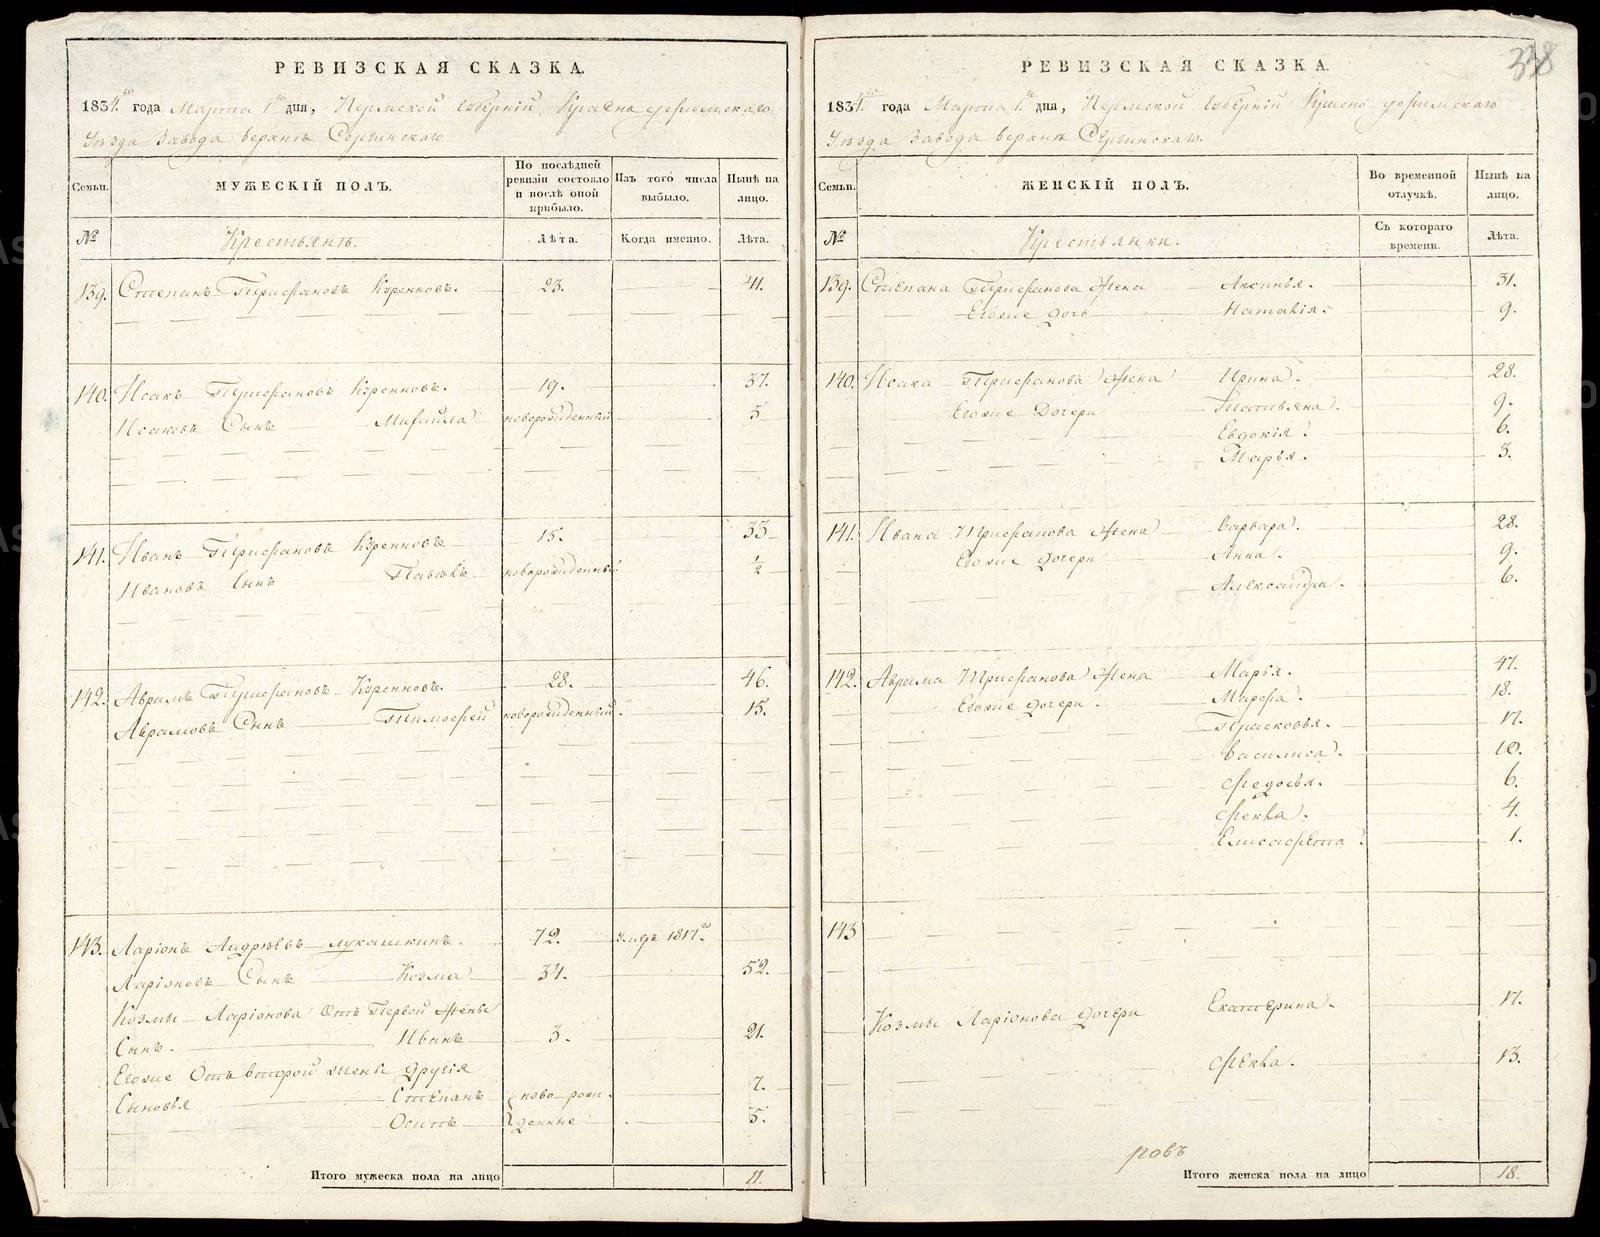 РЕВИЗСКАЯ СКАЗКА.
1834го года Марта 1го дня, Пермской Губерніи, Красно уфимскаго
Уѣзда Завода верхнѣ Сергинскаго
Семьи.
МУЖЕСКІЙ ПОЛЪ.
По послѣдней ревизіи состояло и послѣ оной прибыло.
Изъ того числа выбыло.
Нынѣ на лицо.
№
Крестьянъ.
Лѣта.
Когда именно.
Лѣта.
139. Степанъ Трифановъ Куренновъ. 23. 41.
140. Исакъ Трифановъ Куренновъ. 19. 37.
Исаковъ Сынъ Михаила новорожденный 5
141. Иванъ Трифановъ Куренновъ 15. 33
Ивановъ Сынъ Павелъ новорожденный ½
142. Аврамъ Трифановъ Куренновъ. 28. 46.
Аврамовъ Сынъ Тимофей новорожденный. 15.
143. Ларіонъ Андрѣевъ лукашкинъ. 72. умеръ 1817го.
Ларіоновъ Сынъ Козма 34. 52.
Козмы Ларіонова Отъ Первой Жены
Сынъ. Иванъ 3. 21.
Егожие Отъ второй жены другія 7.
Сыновья Степанъ ново рож
Осипъ денные 5.
Итого мужеска пола на лицо 11.
338
РЕВИЗСКАЯ СКАЗКА.
1834го года Марта 1го дня, Пермской Губерніи Красно уфимскаго
Уѣзда Завода верхнѣ Сергинскаго.
Семьи.
ЖЕНСКІЙ ПОЛЪ.
Во временной отлучкѣ.
Нынѣ на лицо.
№
Крестьянки.
Съ котораго времени.
Лѣта.
139. Степана Трифанова Жена Аксинья. 31.
Егожие дочь Наталія. 9.
140. Исака Трифанова Жена Ирина. 28.
Егожие Дочери Татьяна. 9.
Евдокія. 6.
Марья. 3.
141. Ивана Трифанова Жена Варвара. 28.
Егожие дочери Анна. 9.
Александра. 6.
142. Аврама Трифанова Жена Марья. 47.
Егожие дочери. Марфа. 18.
Прасковья. 17.
Василиса. 10.
Федосья. 6.
Фекла. 4.
Елисафета. 1.
143
Козмы Ларіонова дочери Екатерина. 17.
Фекла. 13.
ровъ
Итого женска пола на лицо 18.